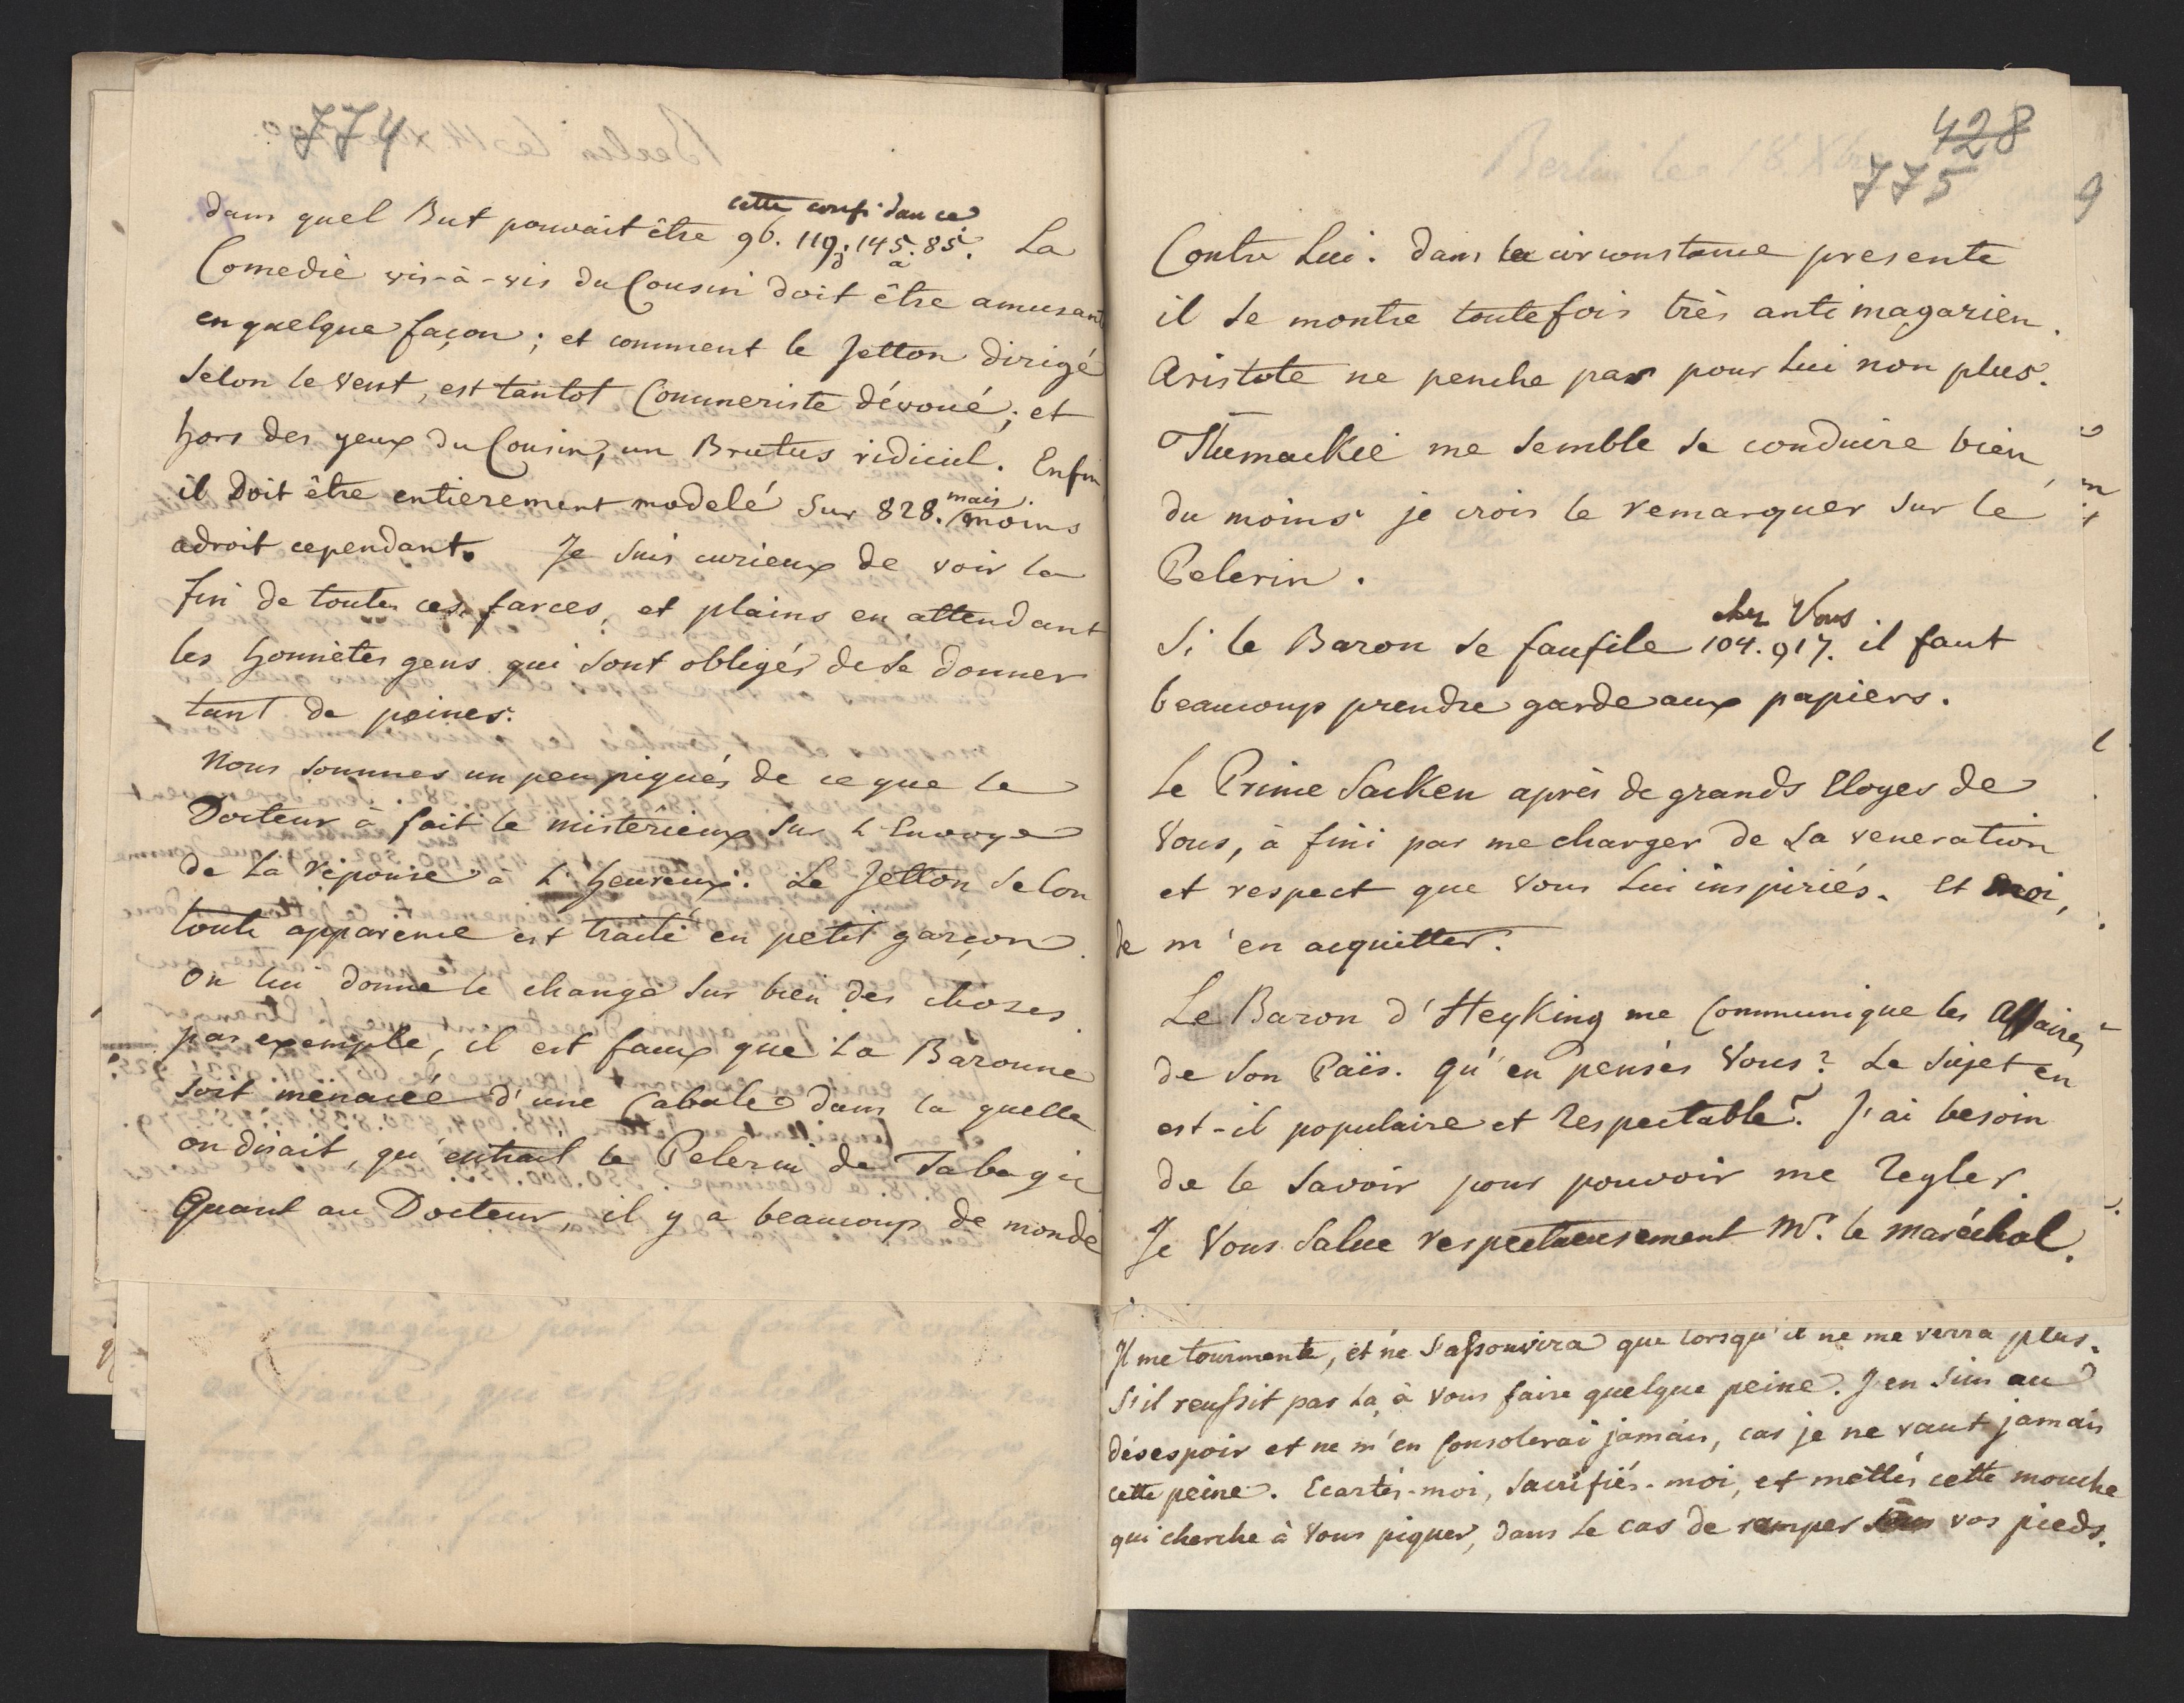 774
cette confidance
dans quel But pouvait être 96. 119. 145. 85. La
Comedie vis-à-vis du Cousin doit être amusant
en quelque façon ; et comment le Jetton dirigé
selon le vent, est tantot Commeriste dévoué ; et
hors des yeux du Cousin, un Brutus ridicul. Enfin
il doit être entierement modelé sur 828. mais moins
adroit cependant. Je suis curieux de voir la
fin de toutes ces farces, et plains en attendant
les honnètes gens qui sont obligés de se donner
tant de peines.
Nous sommes un peu piqués de ce que le
Docteur à fait le mistèrieux sur l'Envoye
de la réponse à l'heureux. Le Jetton selon
toute apparence est traité en petit garçon.
On lui donne le change sur bien des choses
par exemple, il est faux que la Baronne
soit menacée d'une Cabale dans la quelle
on disait, qu'entrait le Pelerin de Tabagie
Quant au Docteur, il y a beaucoup de monde
428
775
9
Contre Lui. dans la circonstance presente
il se montre toutefois très anti magarien.
Aristote ne penche pas pour Lui non plus.
Thumackie me semble se conduire bien,
du moins je crois le remarquer sur le
Pelerin.
chez Vous
Si le Baron se faufile 104. 917. il faut
beaucoup prendre garde aux papiers.
Le Prince Sacken après de grands Eloges de
Vous, à fini par me charger de La veneration
et respect que Vous Lui inspiriés. Et moi,
de m'en acquitter.
Le Baron d'Heyking me Communique les Affaires
de son Païs. qu'en pensés Vous? Le Sujet en
est-il populaire et respectable? J'ai besoin
de le savoir pour pouvoir me regler.
Je Vous salue respectueusement Mr. le Maréchal.
Il me tourmente, et ne s'assouvira que lorsqu'il ne me verra plus.
S'il reussit par là à Vous faire quelque peine. J'en suis au
désespoir et ne m'en Consolerai jamais, cas je ne vaut jamais
cette peine. Ecartés-moi, Sacrifiés-moi, et mettés cette mouche
qui cherche à Vous piquer, dans le cas de ramper sous vos pieds.